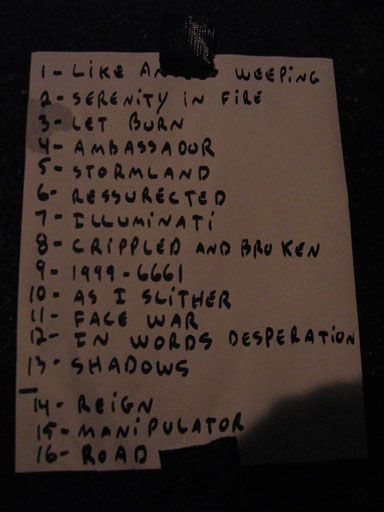 1- LIKE WEEPING
2- SERENITY IN FIRE
3- LET BURN
4- AMBASSADOR
5- STORMLAND
6- RESSURECTED
7- ILLUMINATi
8- CRIPPLED AND BROKEN
9- 1999-6661
10- AS I SLITHER
11- FACE WAR
12- IN WORDS DESPERATION
13- SHADOWS
14- REIGN
15- MANIPULATOR
16- ROAD